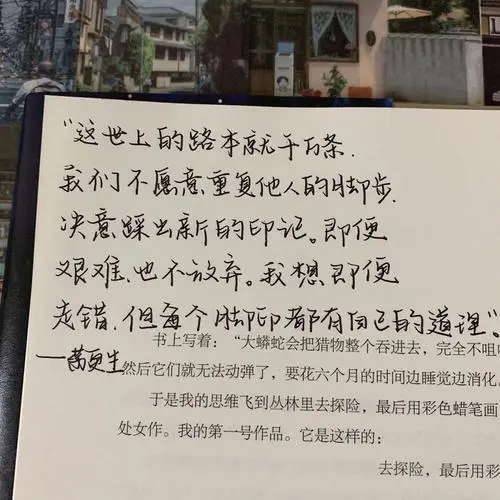 “这世上的路本就千万条.
我们不愿意重复他人的脚步.
决意踩出新的印记。即便
艰难.也不放弃。我想.即便
走错.但每个脚印都有自己的道理”。
——万更生
书上写着：“大蟒蛇会把猎物整个吞进去，完全不咀
然后它们就无法动弹了，要花六个月的时间边睡觉边消化。
于是我的思维飞到丛林里去探险，最后用彩色蜡笔画
处女作。我的第一号作品。它是这样的：
去探险，最后用彩